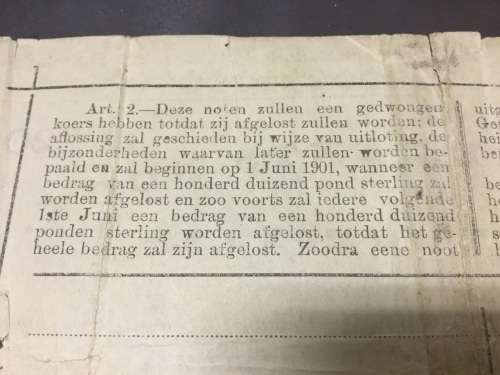 Art. 2.—Deze noten zullen een gedwongen
koers hebben totdat zij afgelost zullen worden; de
aflossing zal geschieden bij wijze van uitloting, de
bijzonderheden waarvan later zullen worden be-
paald en zal beginnen op 1 Juni 1901, wanneer een
bedrag van een honderd duizend pond sterling zal
worden afgelost en zoo voorts zal iedere volgende
1ste Juni een bedrag van een honderd duizend
ponden sterling worden afgelost, totdat het ge-
heele bedrag zal zijn afgelost. Zoodra eene noot